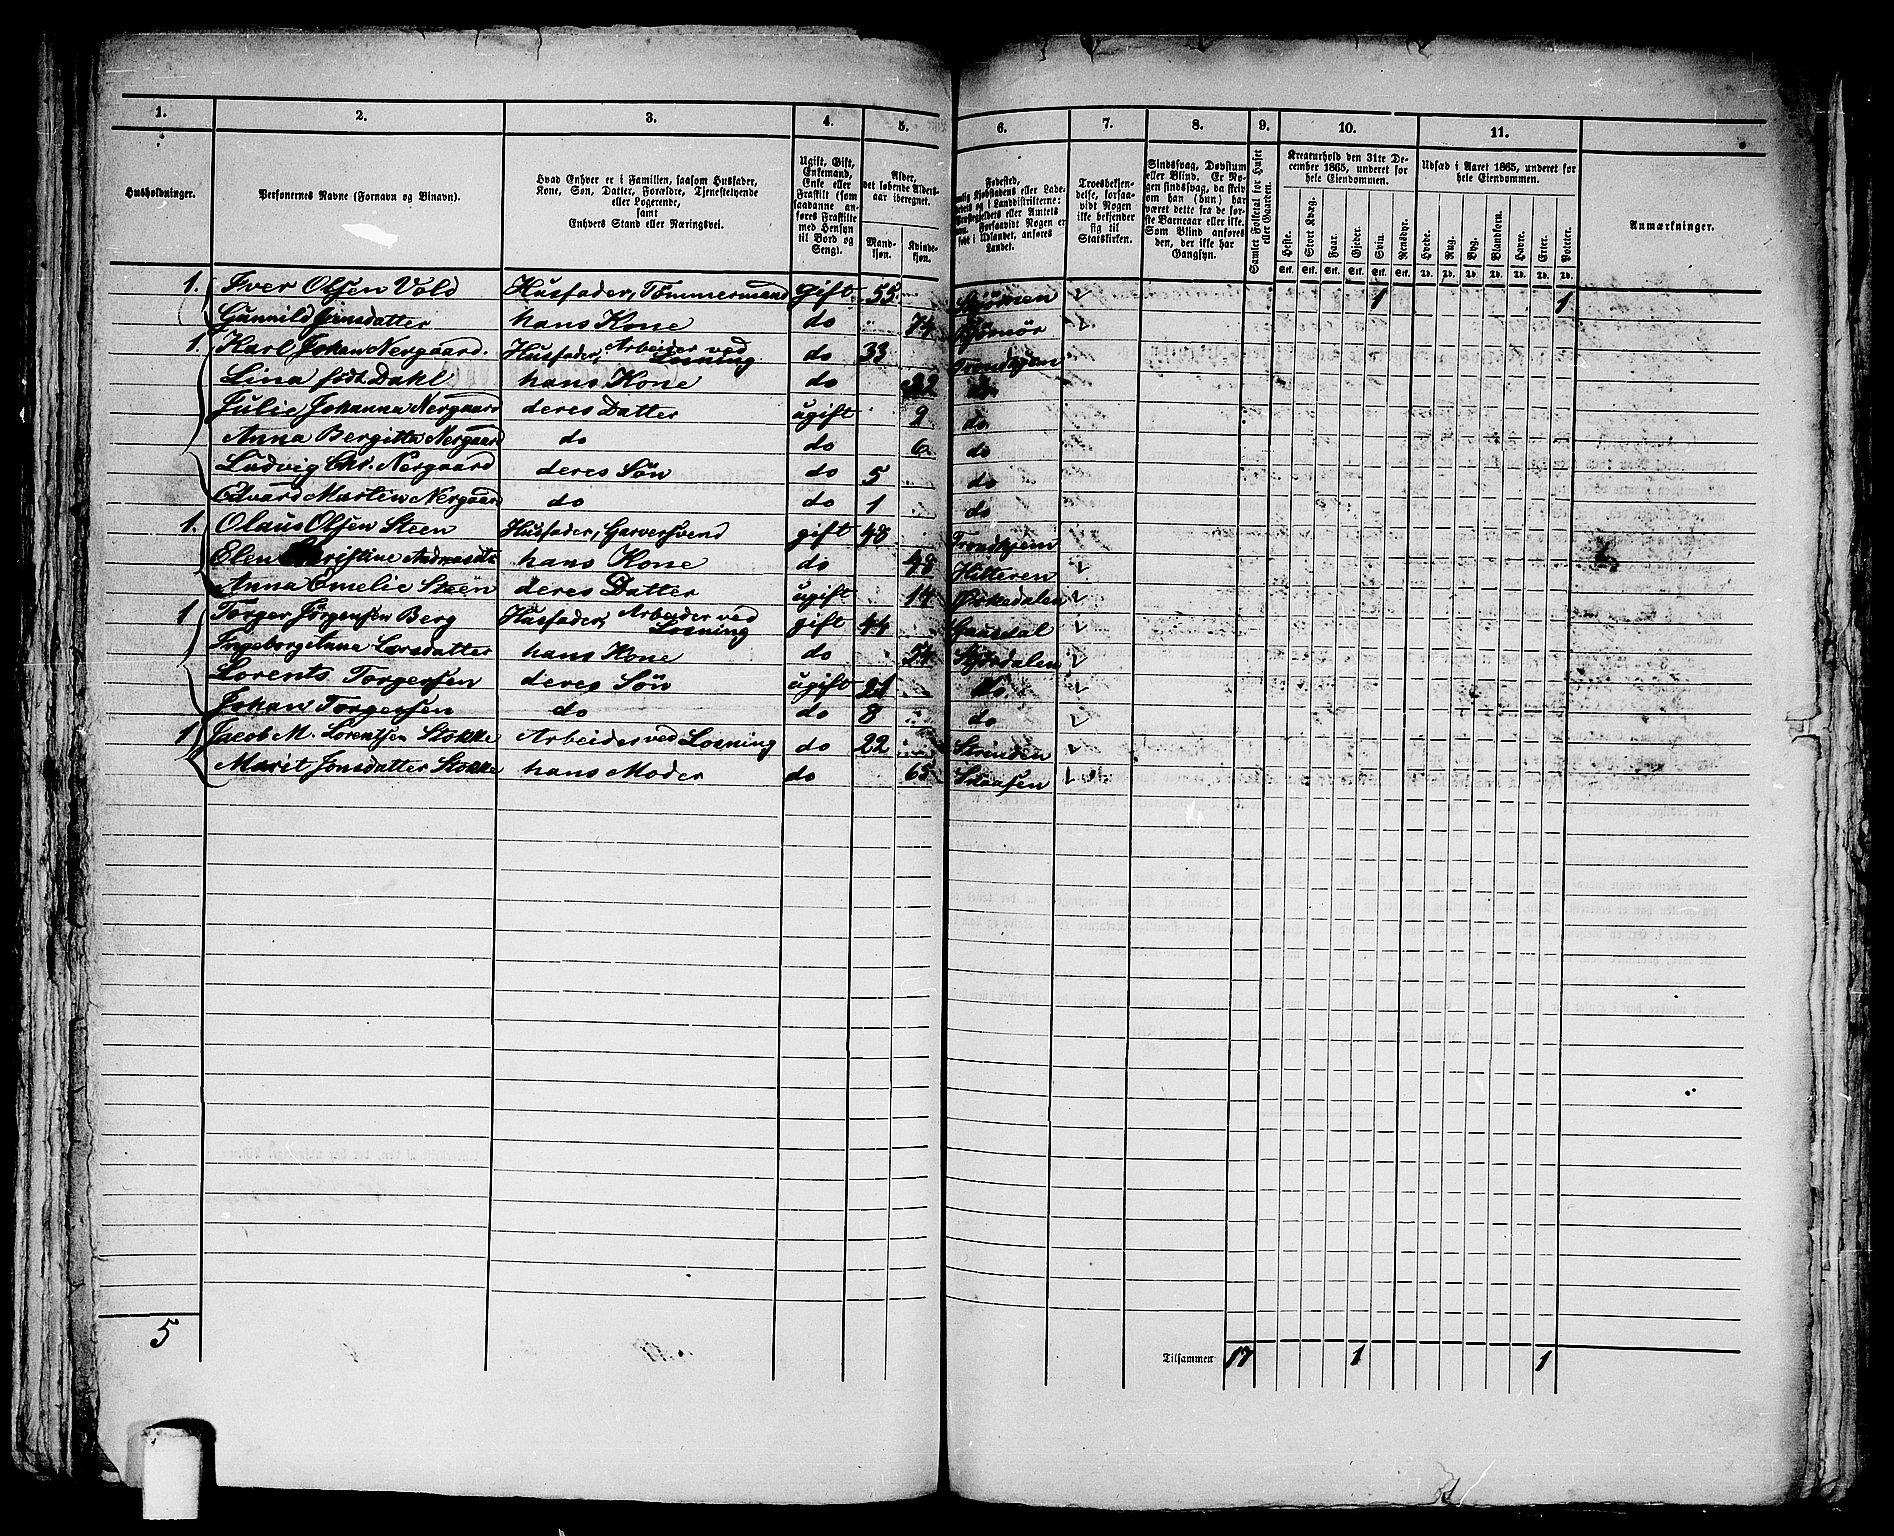 1. 2. 3. 4. 5. 6. 7. 8. 9. 10. 11.
Husholdninger.
Personernes Navne (Fornavn og Tilnavn).
Hvad Enhver er i Familien, saasom Husfader,
Kone, Søn, Datter, Forældre, Tjenestetyende
eller Logerende,
samt
Enhvers Stand eller Næringsvei.
Ugift, Gift,
Enkemand,
Enke eller
Fraskilt (som
saadanne an-
føres Fraskilte
med Hensyn
til Bord og
Seng).
Alder,
det løbende Alders-
aar iberegnet.
Mand-
kjøn.
Kvinde-
kjøn.
Fødested,
Landet.
Troesbekjen-
delse, forsaa-
vidt Nogen
ikke bekjender
sig til
Statskirken.
Sindssvag, Døvstum
eller Blind. Er No-
gen sindssvag, da skriv
om han (hun) har
været dette fra de før-
ste Barneaar eller ikke.
Som Blind anføres
den, der ikke har
Gangsyn.
Samlet Folketal for Huset
eller Gaarden.
Kreaturhold den 31te De-
cember 1865, underet for
hele Eiendommen.
Heste. Stort Kvæg. Faar. Gjeder. Sviin. Rensdyr.
Udsæd i Aaret 1865, underet for
hele Eiendommen.
Hvede. Rug. Byg. Blandkorn. Havre. Erter. Poteter.
Anmærkninger.
1. Iver Olsen Vold Husfader, Tömmermand gift 55 1 1
Gunnild Jensdatter hans Kone do 74
1. Karl Johan Nergaard. Husfader, Arbeider ved Losning do 33 Trondhjem
Lina født Dahl hans Kone do 32 do
Julie Johanna Nergaard deres Datter ugift 9 do
Anna Bergitta Nergaard do do 6 do
Ludvig Chr. Nergaard deres Sön do 5 do
Edvard Martin Nergaard do do 1 do
1. Olaus Olsen Steen Husfader, Garversvend gift 48 Trondhjem
Elen Christine hans Kone do 48 Hitteren
Anna Emelie Steen deres Datter ugift 14 Ørkedalen
1 Torger Jörgensen Berg Husfader, Arbeider ved Losning gift 44 Gausdal
Ingeborg Larsdatter hans Kone do Stjørdalen
Lorents Torgersen deres Sön ugift 21 do
Johan Torgersen do do 8 do
1 Jacob M. Lorentsen Stokke Arbeider ved Losning do 22 Strinden
Marit Jonsdatter Stokke hans Moder do 65 Snaasen
5 Tilsammen 17 1 1